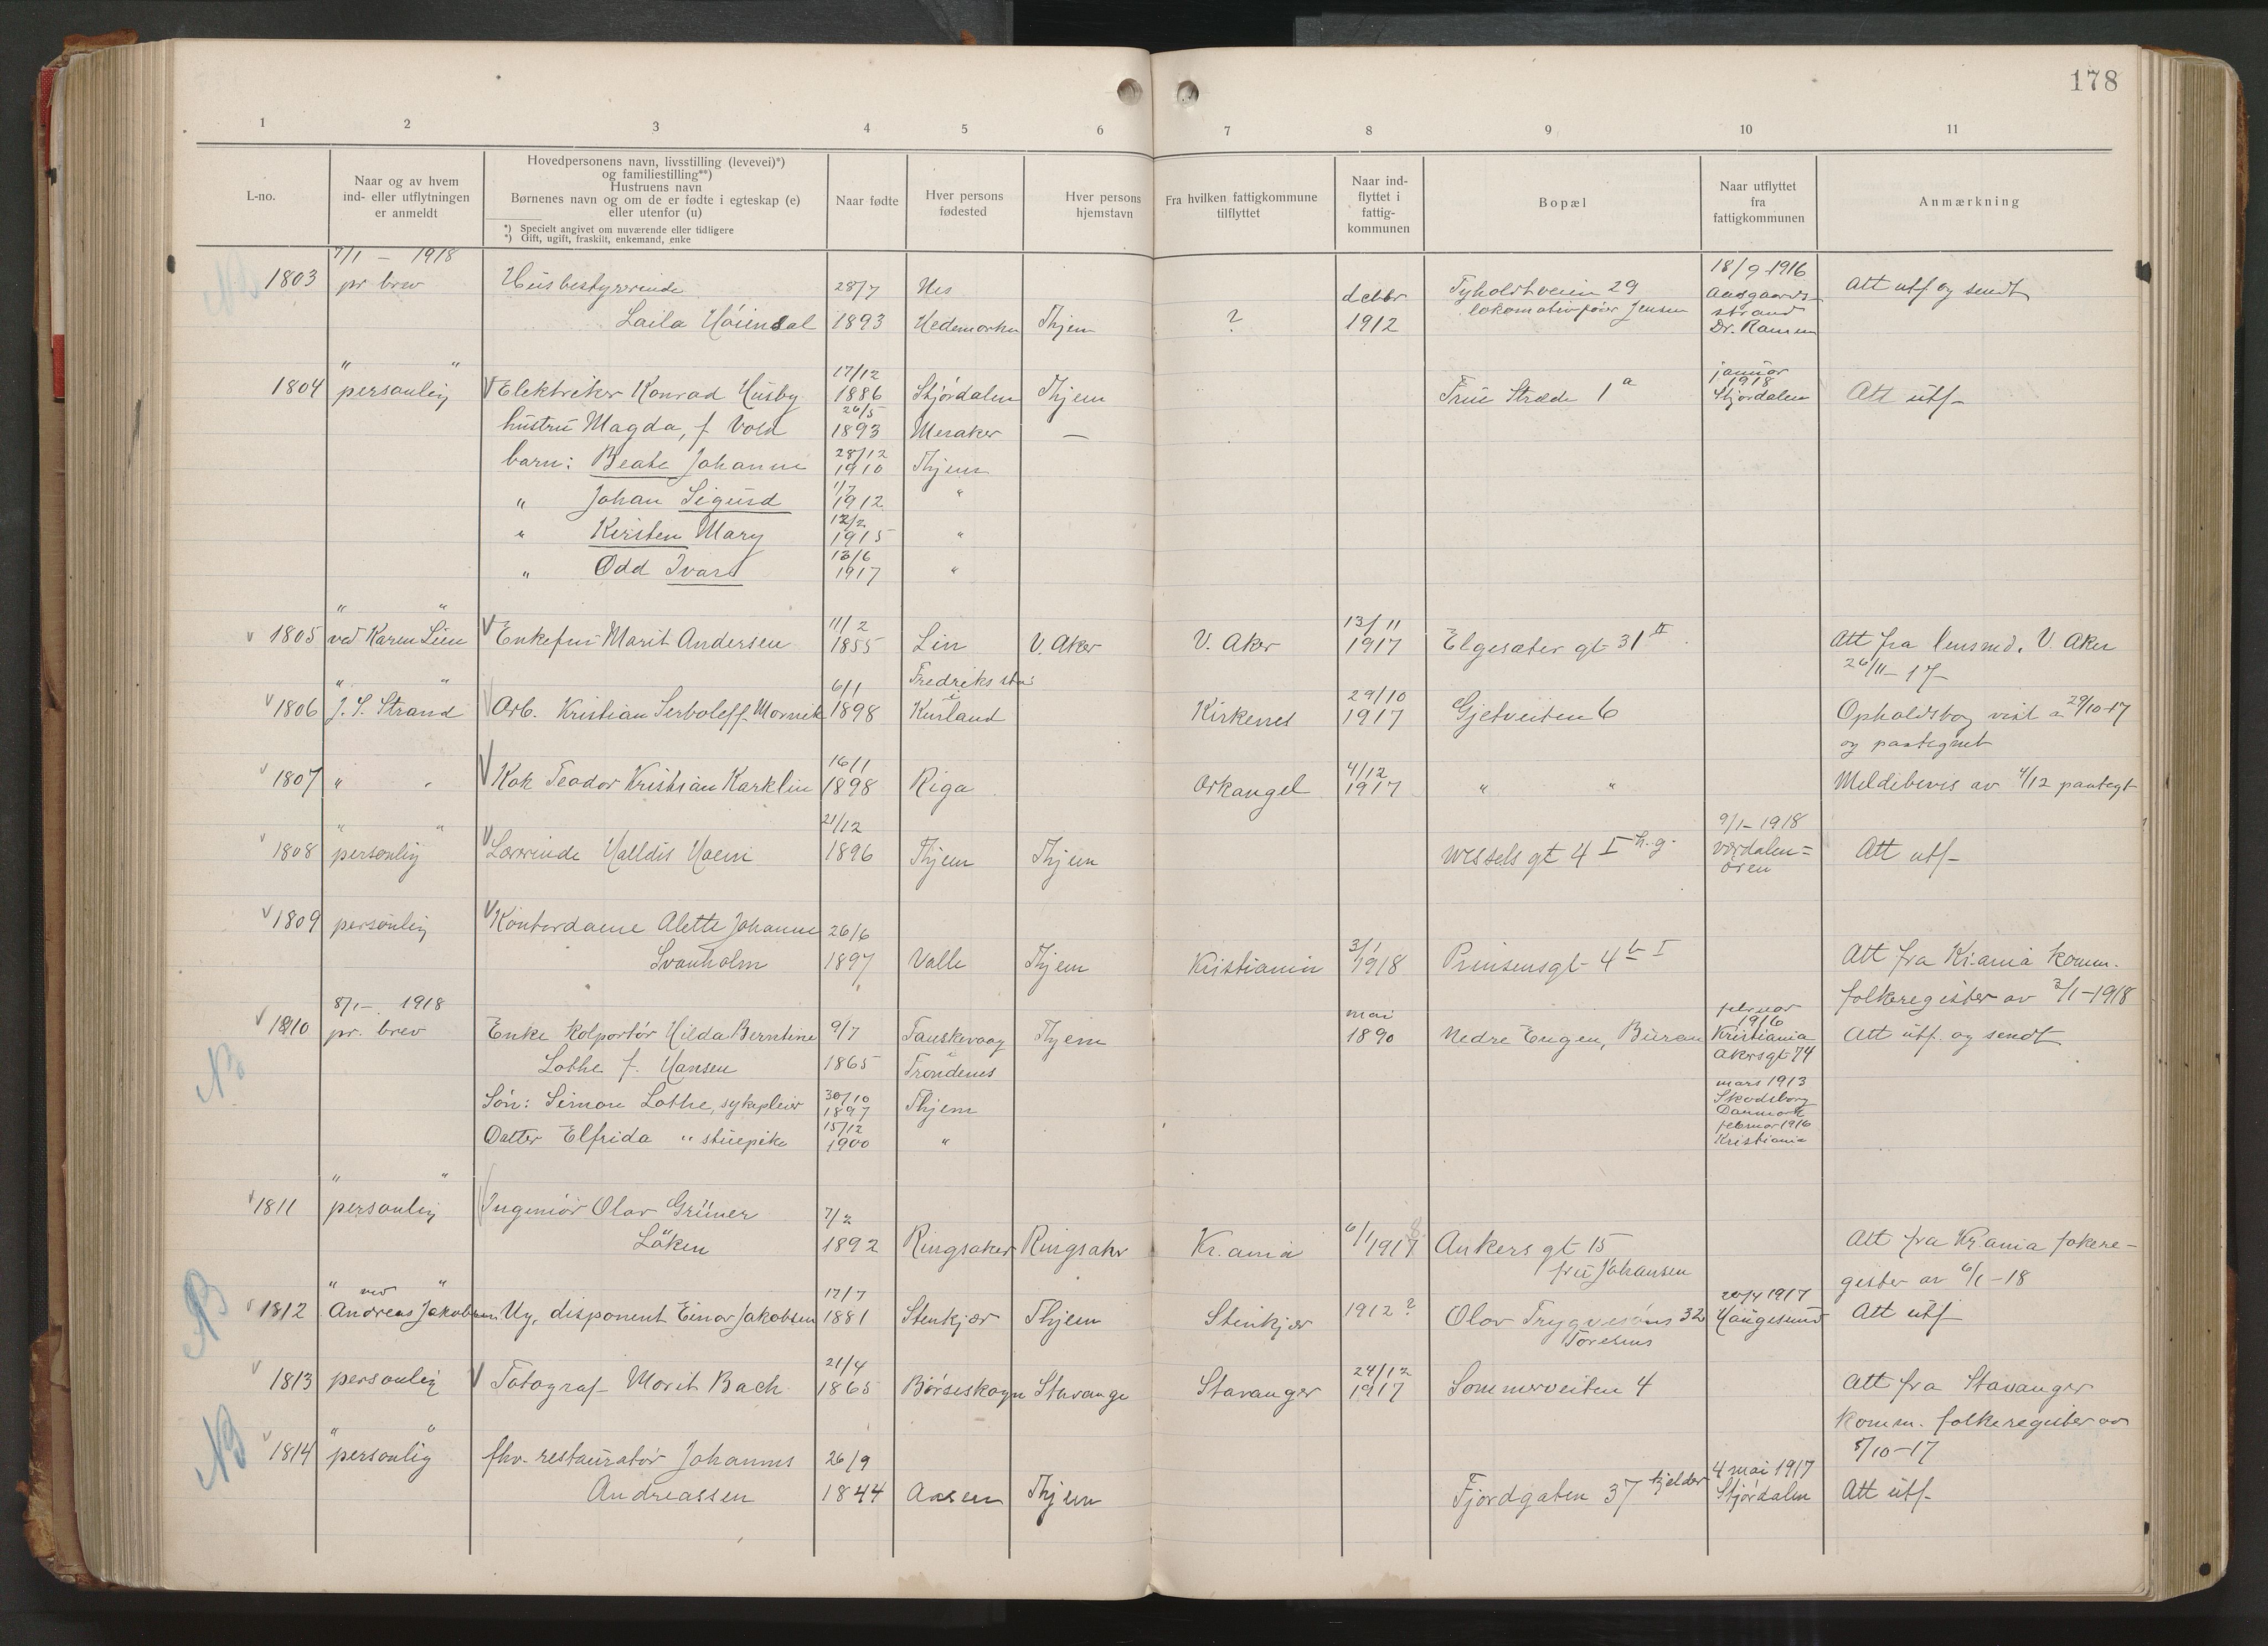 178
1 2 3 4 5 6 7 8 9 10 11
L-no.
Naar og av hvem
ind- eller utflytningen
er anmeldt
Hovedpersonens navn, livsstilling (levevei)*)
og familiestilling**)
Hustruens navn
Børnenes navn og om de er fødte i egteskap (e)
eller utenfor (u)
*) Specielt angivet om nuværende eller tidligere
*) Gift, ugift, fraskilt, enkemand, enke
Naar fødte
Hver persons
fødested
Hver persons
hjemstavn
Fra hvilken fattigkommune
tilflyttet
Naar ind-
flyttet i
fattig-
kommunen
Bopæl
Naar utflyttet
fra
fattigkommunen
Anmærkning
7/1 – 1918
NB 1803 pr brev Husbestyrerinde 28/7 Nes decbr Tyholtveien 29 18/9 1916 Att utf og sendt
Laila Höiendal 1893 Hedemarken Thjem ? 1912 lokomotivförer Jensen Aasgaards-
strand
Dr.
" " 17/12 januar
1804 personlig V Elektriker Konrad Husby 1886 Stjördalen Thjem Frue Stræde 1a 1918 Stjördalen Att utf-
26/5
hustru Magda, f. Vold 1893 Meraker —
barn: Beate Johanne 28/12 1910 Thjem
" Johan Sigurd 1/7 1912 "
" Kirsten Mary 12/2 1915 "
" Odd Ivar 13/6 1917 "
" " 11/2 13/11
v 1805 ved Karen Lien V Enkefru Marit Andersen 1855 Lin V. Aker V. Aker 1917 Elgesæter gt 31 II Att fra lensmd. V. Aker
26/11-17-
" " 6/1 Fredriksstad i 29/10
v 1806 J. S. Strand V Arb. Kristian Serboleff Mornek 1898 Kurland Kirkenes 1917 Gjetveiten 6 Opholdsbog vist a 29/10-17
og paategnet
16/1 4/12
v 1807 " " V Kok Teodor Kristian Karklin 1898 Riga Arkangel 1917 " " Meldebevis av 4/12 paategt
" " 21/12 9/1-1918
v 1808 personlig V Lærerinde Halldis Hoem 1896 Thjem Thjem Wessels gt 4 I h.g. Værdalen= Att utf-
ören
v 1809 personlig V Kontordame Alette Johanne 26/6 3/1
Svanholm 1897 Valle Thjem Kristiania 1918 Prinsensgt 4 b I Att fra Kr.ania komm.
folkeregister av 2/1-1918
8/1- 1918 mai februar
v 1810 pr. brev Enke kolportör Hilda Berntine 9/7 Tauskevaag Thjem 1890 Nedre Engen, Buran 1916 Kristiania Att utf. og sendt
NB Lothe f. Hansen 1865 Trondenes Akersgt 74
Sön: Simon Lothe, sykepleier 30/10 1897 Thjem mars 1913 Skodsborg Danmark
Datter Elfrida " stuepike 15/12 1900 " februar 1916 Kristiania
" "
v 1811 personlig V Ingeniör Olav Grüner 7/2 6/1
Löken 1892 Ringsaker Ringsaker Kr.ania 1917 8 Ankers gt 15 Att fra Kr.ania fokere-
fru Johansen gister av 6/1-18
" ved " 17/7 20/4 1917
NB v 1812 Andreas Jakobsen Ug. disponent Einar Jakobsen 1881 Stenkjær Thjem Stenkjær 1912 ? Olav Trygvesöns 32 Haugesund Att utf
Toresens
21/4 24/12
v 1813 personlig V Fotograf Marit Bach 1865 Börseskogn Stavange Stavanger 1917 Sommerveiten 4 Att fra Stavanger
komm. folkeregister av
8/10-17
" "
NB v 1814 personlig fhv. restauratör Johannes 26/9 4 mai 1917
Andreassen 1844 Aasen Thjem Fjordgaten 37 kjelder Stjördalen Att utf.